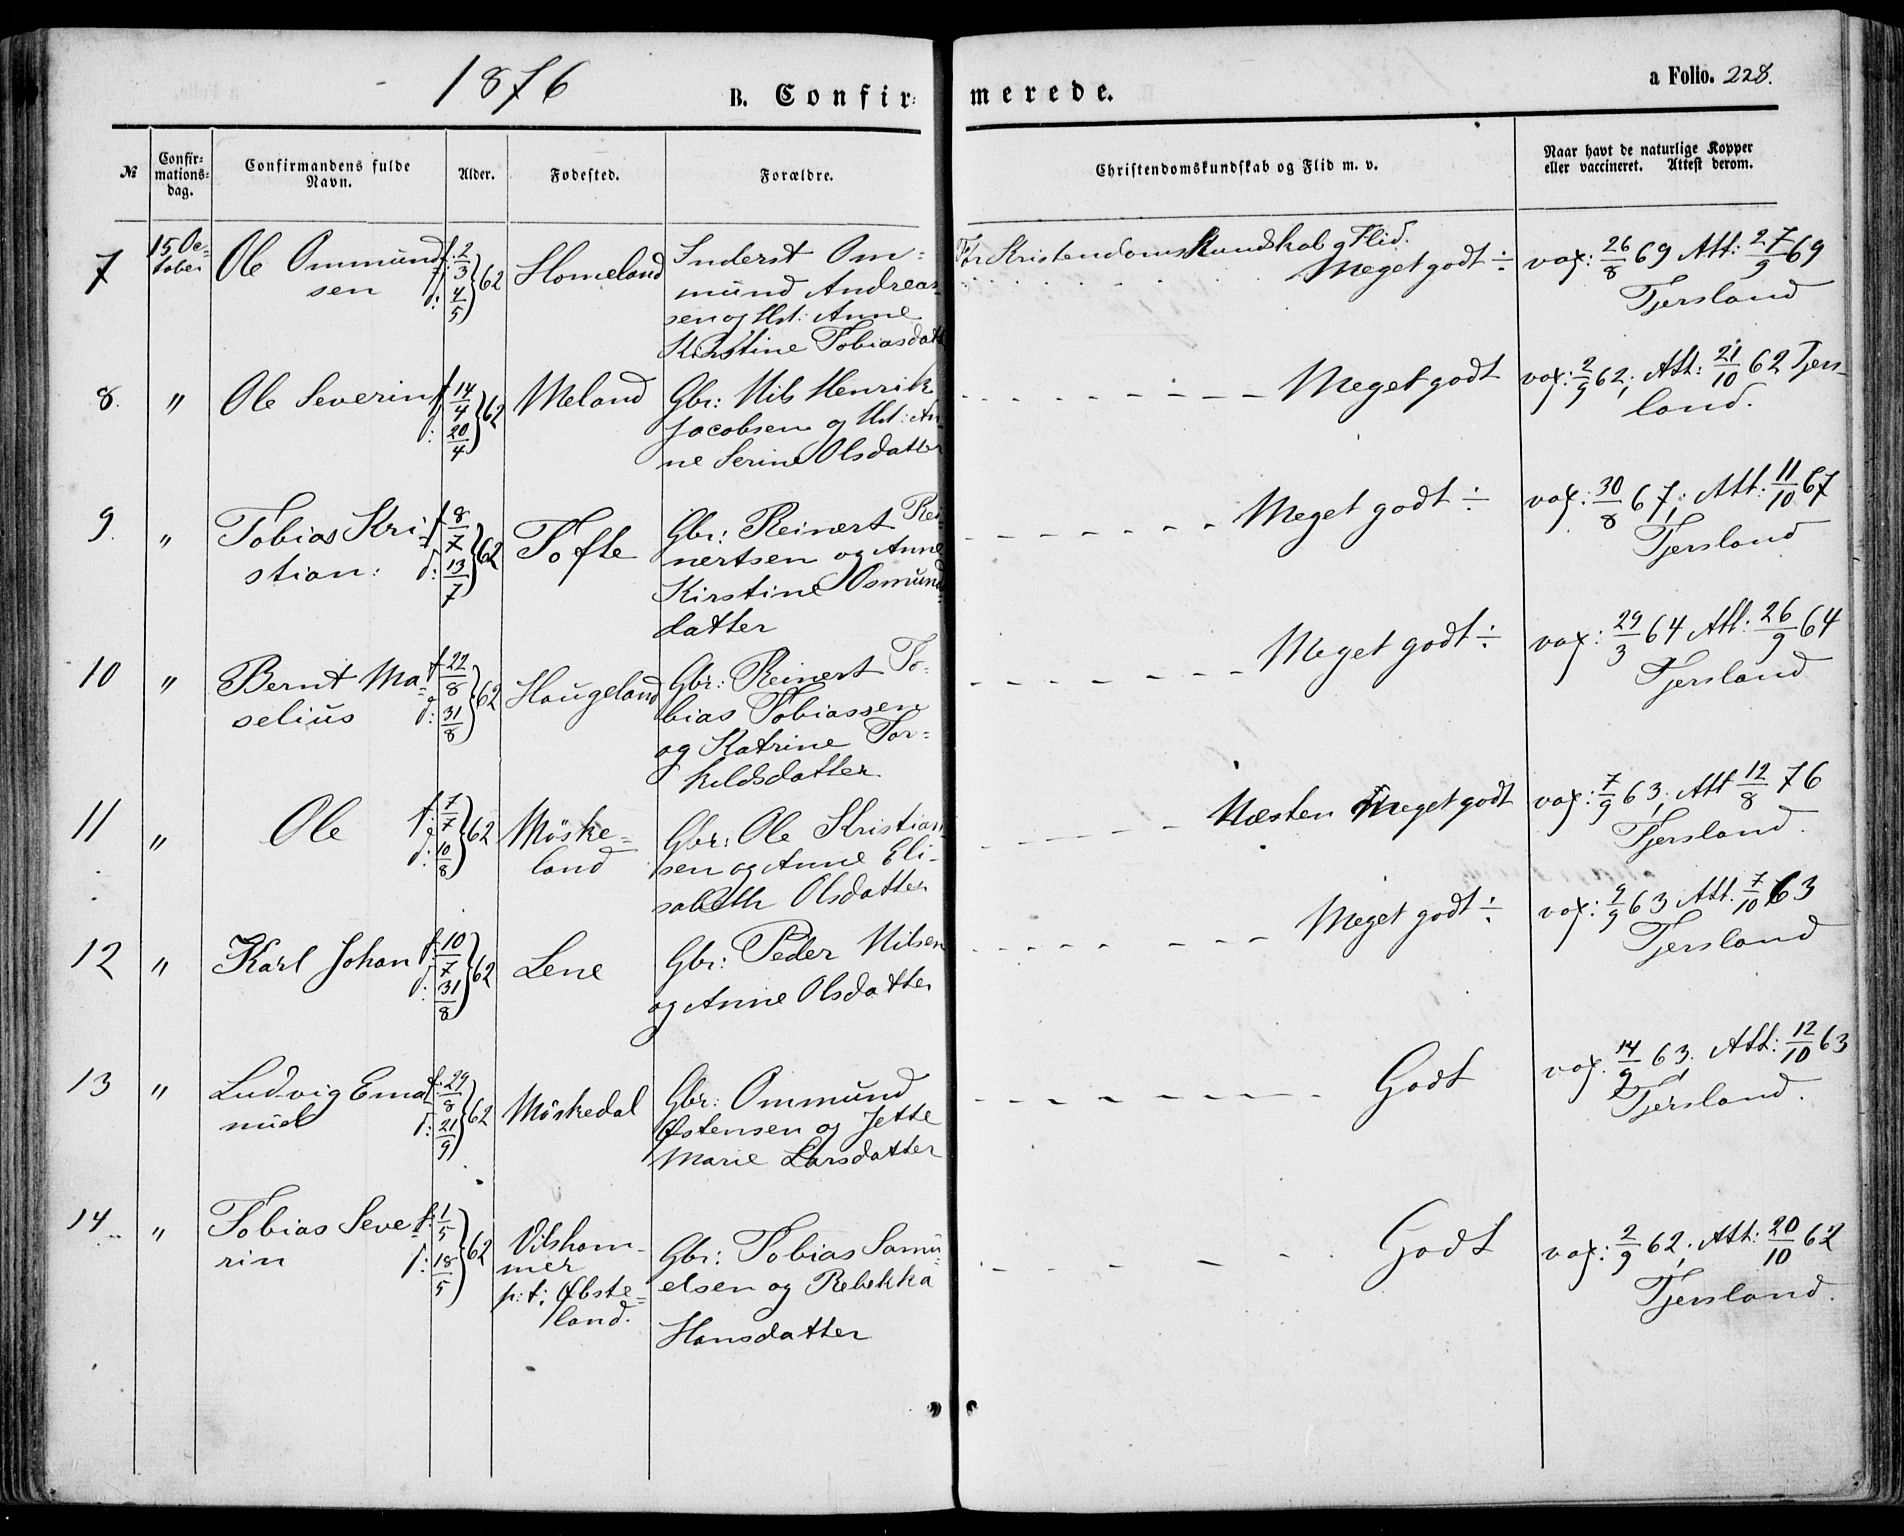 1876
B. Confir=
merede.
a Folio. 228.
№
Confir=
mations=
dag.
Confirmandens fulde
Navn.
Alder.
Fødested.
Forældre.
Christendomskundskab og Flid m. v.
Naar havt de naturlige Kopper
eller vaccineret. Attest derom.
7
15 Oc=
tober
Ole Ommund
sen
f. 2/3
d: 4/5 } 62
Homeland
Inderst Om=
mund Andreas
sen og Hst: Anne
Kirstine Tobiasdatt
For Kristendoms Kundskab og Flid.
Meget godt ÷
vax: 26/8 69 Att: 27/9 69
Tjersland
8.
"
Ole Severin
f 14/4
d: 20/4 } 62
Meland
Gbr: Nils Henrik
Jacobsen og Hst: An
ne Serine Olsdatter
Meget godt
vax: 2/9 62; Att: 21/10 62 Tjers-
land.
9.
"
Tobias Kri
stian:
f 8/7
d: 13/7 } 62
Tofte
Gbr: Reinert Rei
nertsen og Anne
Kirstine Osmund
datter
Meget godt ÷
vax: 30/8 67; Att: 11/10 67
Tjersland
10
"
Bernt Ma=
selius
f 22/8
d: 31/8 } 62
Haugeland
Gbr: Reinert To-
bias Tobiassen
og Katrine Tor=
kildsdatter
Meget godt ÷
vax: 29/3 64 Att: 26/9 64
Tjersland
11
"
Ole
f: 7/7
d: 10/8 } 62
Möske=
land
Gbr: Ole Kristian
sen og Anne Eli-
sabeth Olsdatter
Næsten Meget godt
vax: 7/9 63; Att 12/8 76
Tjersland.
12
"
Karl Johan
f. 10/7
d: 31/8 } 62
Lene
Gbr: Peder Nilsen
og Anne Olsdatter
Meget godt ÷
vax: 9/9 63 Att. 7/10 63
Tjersland
13
"
Ludvig Ema
nuel
f: 29/8
d: 21/9 } 62
Möskedal
Gbr: Ommund
Østensen og Jette
Marie Larsdatter
Godt
vax. 14/9 63, Att: 12/10 63
Tjersland.
14
"
Tobias Seve
rin
f: 1/5
d: 18/5 } 62
Vilshom-
mer
p: t: Øbste=
land.
Gbr: Tobias Samu=
elsen og Rebekka
Hansdatter
Godt
vax: 2/9 62; Att: 20/10 62
Tjersland.